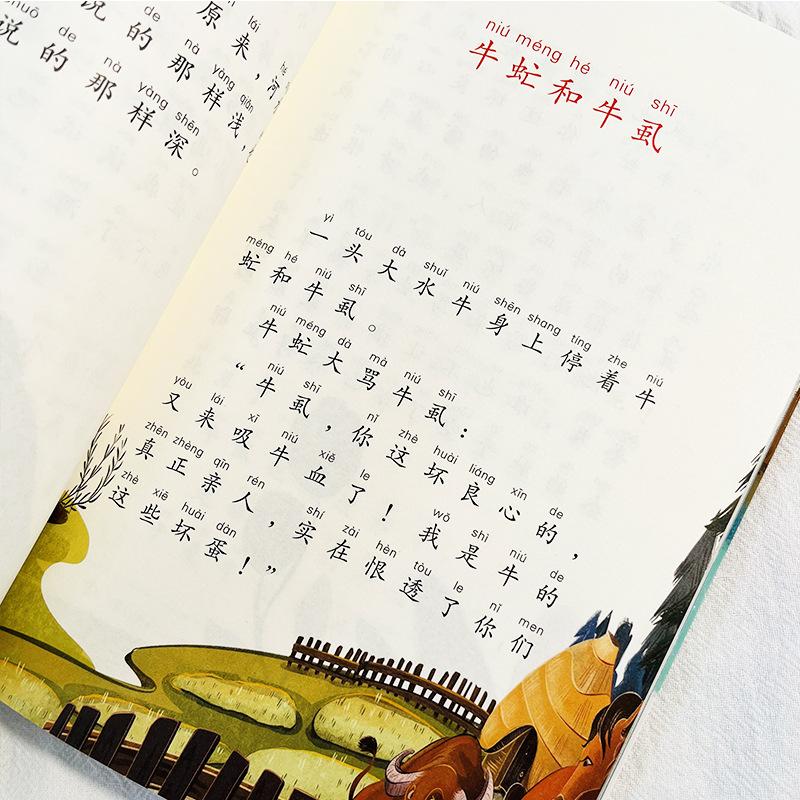 lái
原来，河
de nà yàng qiǎn
说的那样浅，
de nà yàng shēn
说的那样深。
niú méng hé niú shī
牛虻和牛虱
yì tóu dà shuǐ niú shēn shang tíng zhe niú
一头大水牛身上停着牛
méng hé niú shī
虻和牛虱。
niú méng dà mà niú shī
牛虻大骂牛虱：
niú shī nǐ zhè huài liáng xīn de
“牛虱，你这坏良心的，
yòu lái xī niú xiě le wǒ shì niú de
又来吸牛血了！我是牛的
zhēn zhèng qīn rén shí zài hèn tòu le nǐ men
真正亲人，实在恨透了你们
zhè xiē huài dàn
这些坏蛋！”